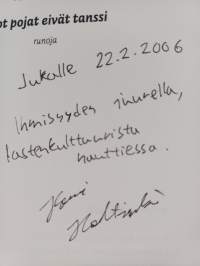 ot pojat eivät tanssi
runoja
Jukalle 22.2.2006
Ihmisyyden juurella,
lastenkulttuurista
nauttiessa.